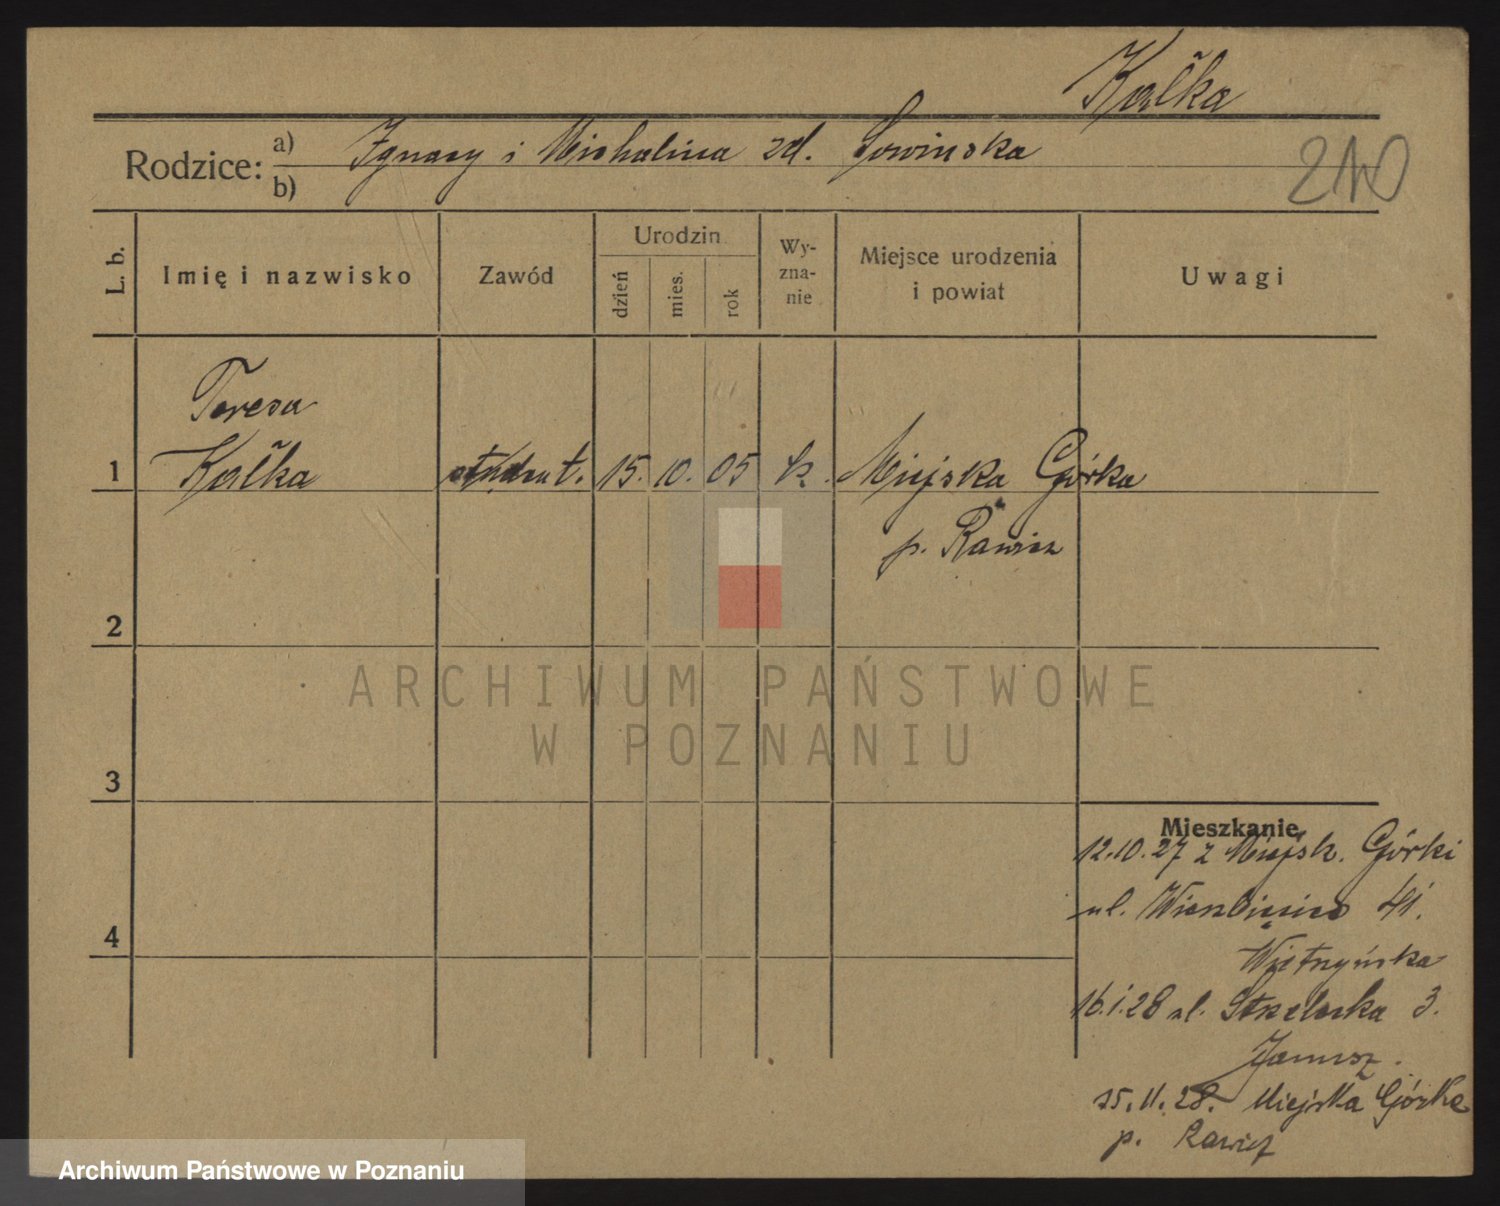 Kałka
Rodzice: a) Ignacy i Michalina zd. Sowińska
b)
210
L. b.
Imię i nazwisko
Zawód
Urodzin
dzień
mies.
rok
Wy-
zna-
nie
Miejsce urodzenia
i powiat
Uwagi
Teresa
1 Kałka student. 15. 10. 05 k. Miejska Górka
p. Rawicz
2
ARCHIWUM PAŃSTWOWE
W POZNANIU
3
Mieszkanie
12.10.27 z Miejsk. Górki
ul. Wierzbięcice 41.
4
Wietrzyńska
16.1.28 ul. Strzelecka 3.
Janusz.
25.11.28. Miejska Górka
p. Rawicz
Archiwum Państwowe w Poznaniu